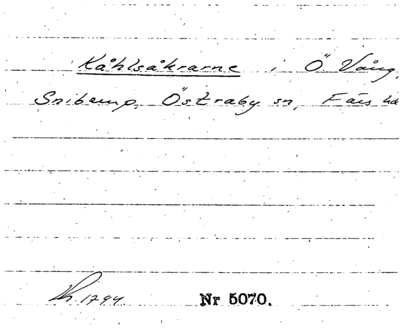 Kåhlsåkrarne i Ö Vång,
Snibemp, Östraby sn, Färs hd
1794 Nr 5070.